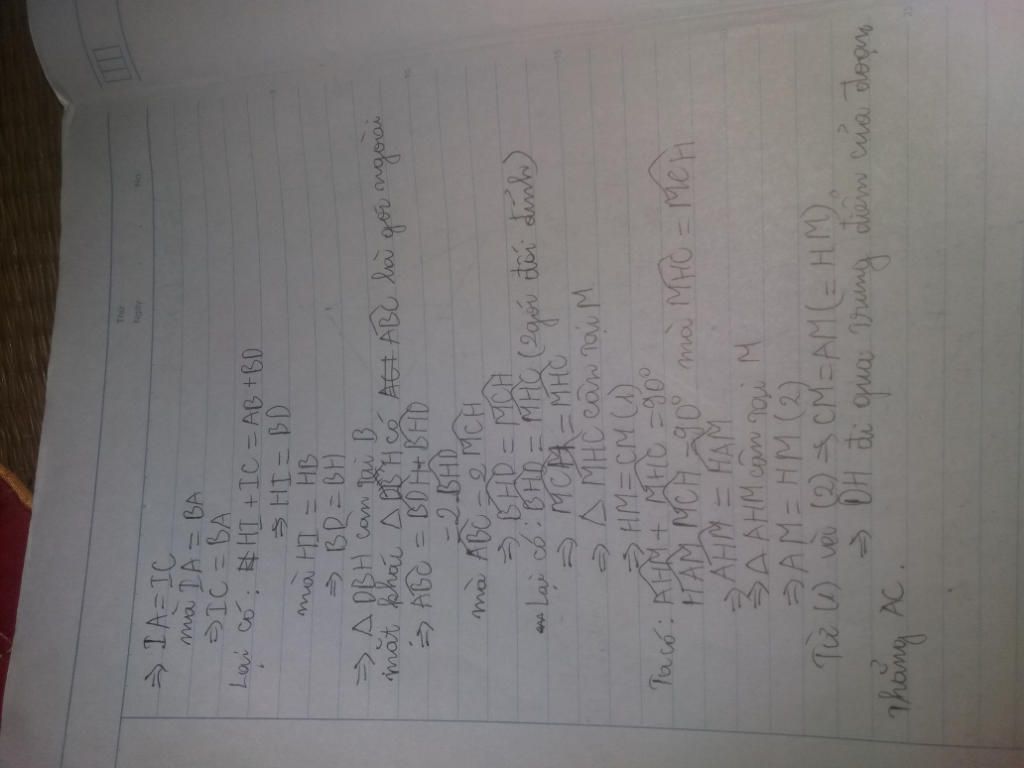 Thứ
Ngày
No.
⇒ IA = IC
mà IA = BA
⇒ IC = BA
Lại có: HI + IC = AB + BD
⇒ HI = BD
mà HI = HB
⇒ BD = BH
⇒ △ DBH cân tại B
mặt khác △ DBH có ABC là góc ngoài
⇒ ABC = BDH + BHD
= 2 BHD
mà ABC = 2 MCH
⇒ BHD = MCH
Lại có: BHD = MHC (2 góc đối đỉnh)
⇒ MCH = MHC
⇒ △ MHC cân tại M
⇒ HM = CM (1)
Ta có: AHM + MHC = 90°
HAM MCH = 90° mà MHC = MCH
⇒ AHM = HAM
⇒ △ AHM cân tại M
⇒ AM = HM (2)
Từ (1) và (2) ⇒ CM = AM (= HM)
⇒ DH đi qua trung điểm của đoạn
thẳng AC.